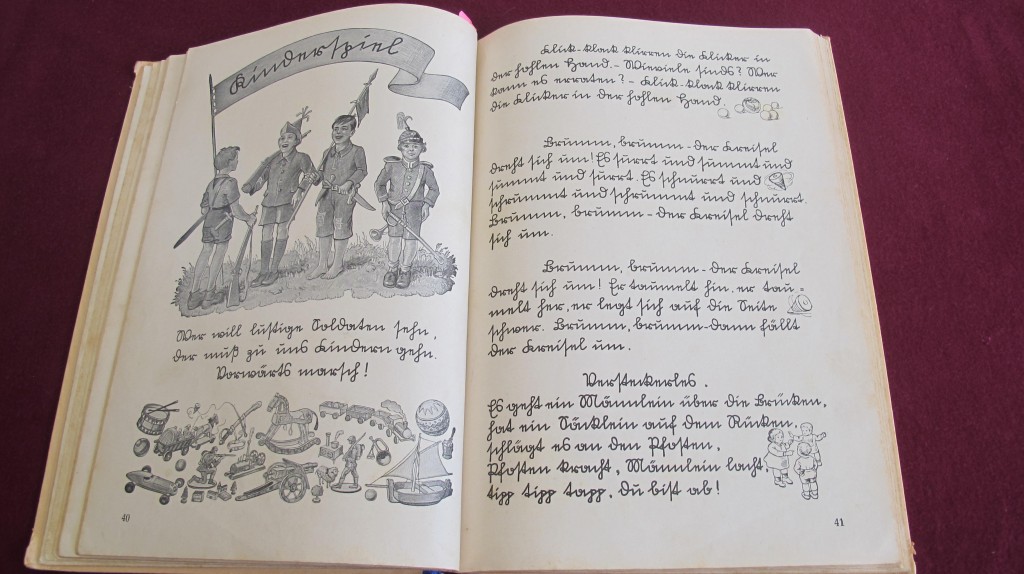 Kinderspiel
Wer will lustige Soldaten sehn,
der muß zu uns Kindern gehn.
Vorwärts marsch!
40
Klick-klack klirren die Klicker in
der hohlen Hand. - Wieviele sinds? Wer
kann es erraten? - Klick-klack klirren
die Klicker in der hohlen Hand.
Brumm, brumm - der Kreisel
dreht sich um! Es surrt und summt und
summt und surrt. Es schnurrt und
schrummt und schrummt und schnurrt.
Brumm, brumm - der Kreisel dreht
sich um.
Brumm, brumm - der Kreisel
dreht sich um! Er taumelt hin, er tau=
melt her, er legt sich auf die Seite
schwer. Brumm, brumm - dann fällt
der Kreisel um.
Versteckerles.
Es geht ein Männlein über die Brücken,
hat ein Säcklein auf dem Rücken,
schlägt es an den Pfosten,
Pfosten kracht, Männlein lacht,
tipp tipp tapp, du bist ab!
41